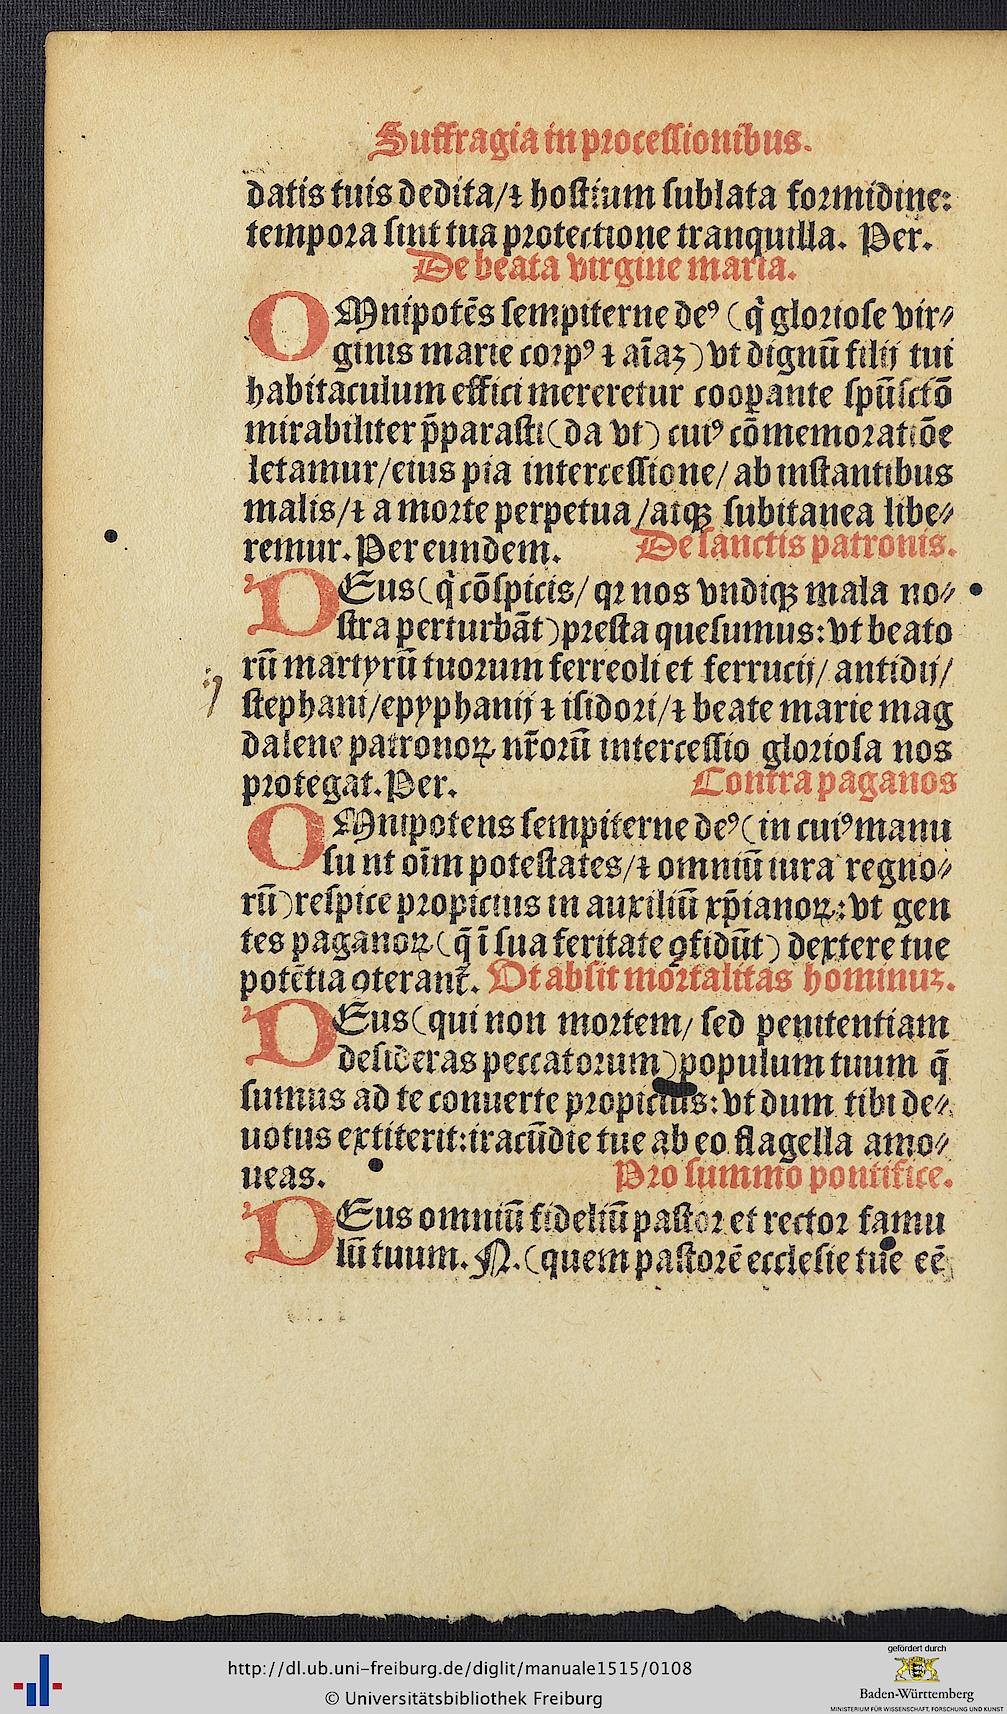 Suffragia in processionibus.
datis tuis dedita/⁊ hostium sublata formidine:
tempora sint tua protectione tranquilla. Per.
De beata virgine maria.
OMnipotẽs sempiterne deꝰ (q̇ gloriose vir⸗
ginis marie corpꝰ ⁊ aĩaʒ) vt dignũ filij tui
habitaculum effici mereretur coopante spũsctõ
mirabiliter p̃parasti (da vt) cuiꝰ cõmemoratiõe
letamur/eius pia intercessione/ ab instantibus
malis/⁊ a morte perpetua/atqꝫ subitanea libe⸗
remur. Per eundem. De sanctis patronis.
DEus (q̇ cõspicis/ qꝛ nos vndiqꝫ mala no⸗
stra perturbãt) presta quesumus: vt beato
rũ martyrũ tuorum ferreoli et ferrucij/ antidij/
stephani/epyphanij ⁊ isidori/⁊ beate marie mag
dalene patronoꝝ nr̃orũ intercessio gloriosa nos
protegat. Per. Contra paganos
OMnipotens sempiterne deꝰ (in cuiꝰ manu
sunt oĩm potestates/⁊ omniũ iura regno⸗
rũ) respice propicius in auxiliũ xp̃ianoꝝ: vt gen
tes paganoꝝ (q̃ ĩ sua feritate ꝯfidũt) dextere tue
potẽtia ꝯterant᷑. Vt absit mortalitas hominuʒ.
DEus (qui non mortem/ sed penitentiam
desideras peccatorum) populum tuum q̃
sumus ad te conuerte propicius: vt dum tibi de⸗
uotus extiterit: iracũdie tue ab eo flagella amo⸗
ueas. Pro summo pontifice.
DEus omniũ fideliũ pastor et rector famu
lũ tuum. N. (quem pastorẽ ecclesie tue eẽ
http://dl.ub.uni-freiburg.de/diglit/manuale1515/0108
© Universitätsbibliothek Freiburg
gefördert durch
Baden-Württemberg
MINISTERIUM FÜR WISSENSCHAFT, FORSCHUNG UND KUNST